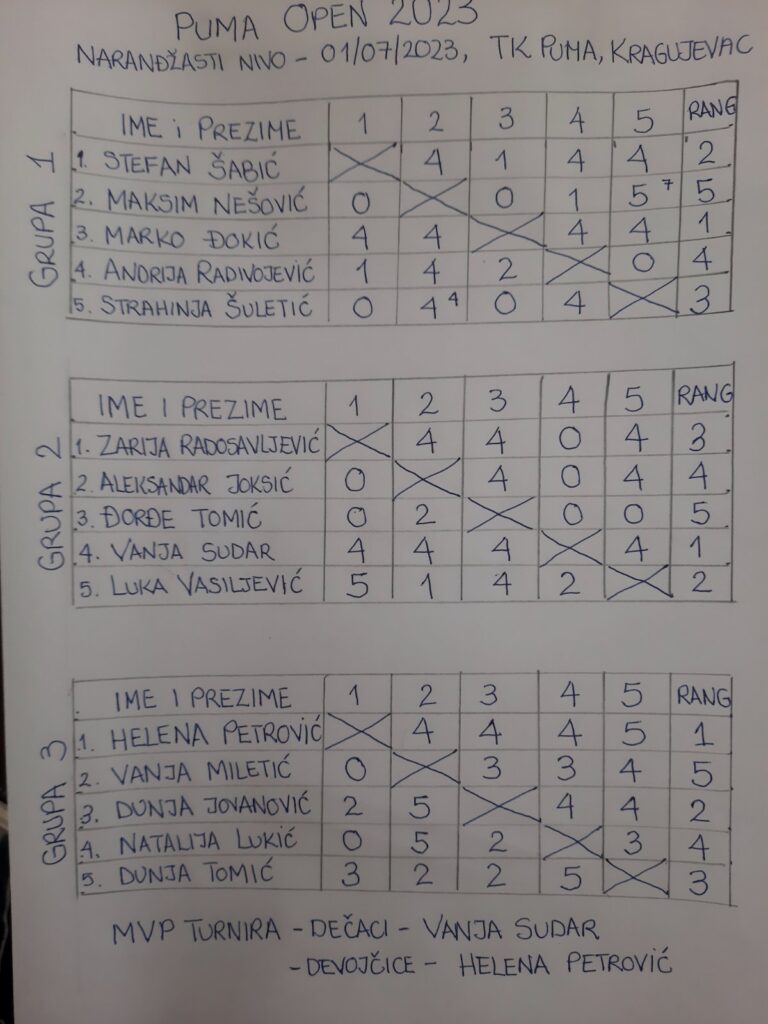 PUMA OPEN 2023
NARANDŽASTI NIVO - 01/07/2023, TK PUMA, KRAGUJEVAC
GRUPA 1
IME i PREZIME 1 2 3 4 5 RANG
1. STEFAN ŠABIĆ X 4 1 4 4 2
2. MAKSIM NEŠOVIĆ 0 X 0 1 5 7 5
3. MARKO ĐOKIĆ 4 4 X 4 4 1
4. ANDRIJA RADIVOJEVIĆ 1 4 2 X 0 4
5. STRAHINJA ŠULETIĆ 0 4 4 0 4 X 3
GRUPA 2
IME I PREZIME 1 2 3 4 5 RANG
1. ZARIJA RADOSAVLJEVIĆ X 4 4 0 4 3
2. ALEKSANDAR JOKSIĆ 0 X 4 0 4 4
3. ĐORĐE TOMIĆ 0 2 X 0 0 5
4. VANJA SUDAR 4 4 4 X 4 1
5. LUKA VASILJEVIĆ 5 1 4 2 X 2
GRUPA 3
IME I PREZIME 1 2 3 4 5 RANG
1. HELENA PETROVIĆ X 4 4 4 5 1
2. VANJA MILETIĆ 0 X 3 3 4 5
3. DUNJA JOVANOVIĆ 2 5 X 4 4 2
4. NATALIJA LUKIĆ 0 5 2 X 3 4
5. DUNJA TOMIĆ 3 2 2 5 X 3
MVP TURNIRA - DEČACI - VANJA SUDAR
- DEVOJČICE - HELENA PETROVIĆ